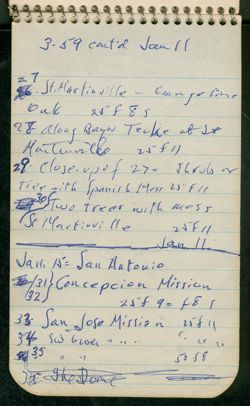 3-59 cont'd Jan 11
27
St. Martinville - Evangeline
Oak 25 f 8 s
28 Along Bayou Teche at St
Martinville 25 f 11
29. Close-up of 27 - Shrub or
tree with Spanish Moss 25 f 11
30 Two trees with moss
St Martinville 25 f 11
Jan 11
Jan 15 = San Antonio
31} Concepcion Mission
32} 25 f 9 = f 8 s
33 San Jose Mission 25 f 11
34 " " " "
35 " "
The Dome